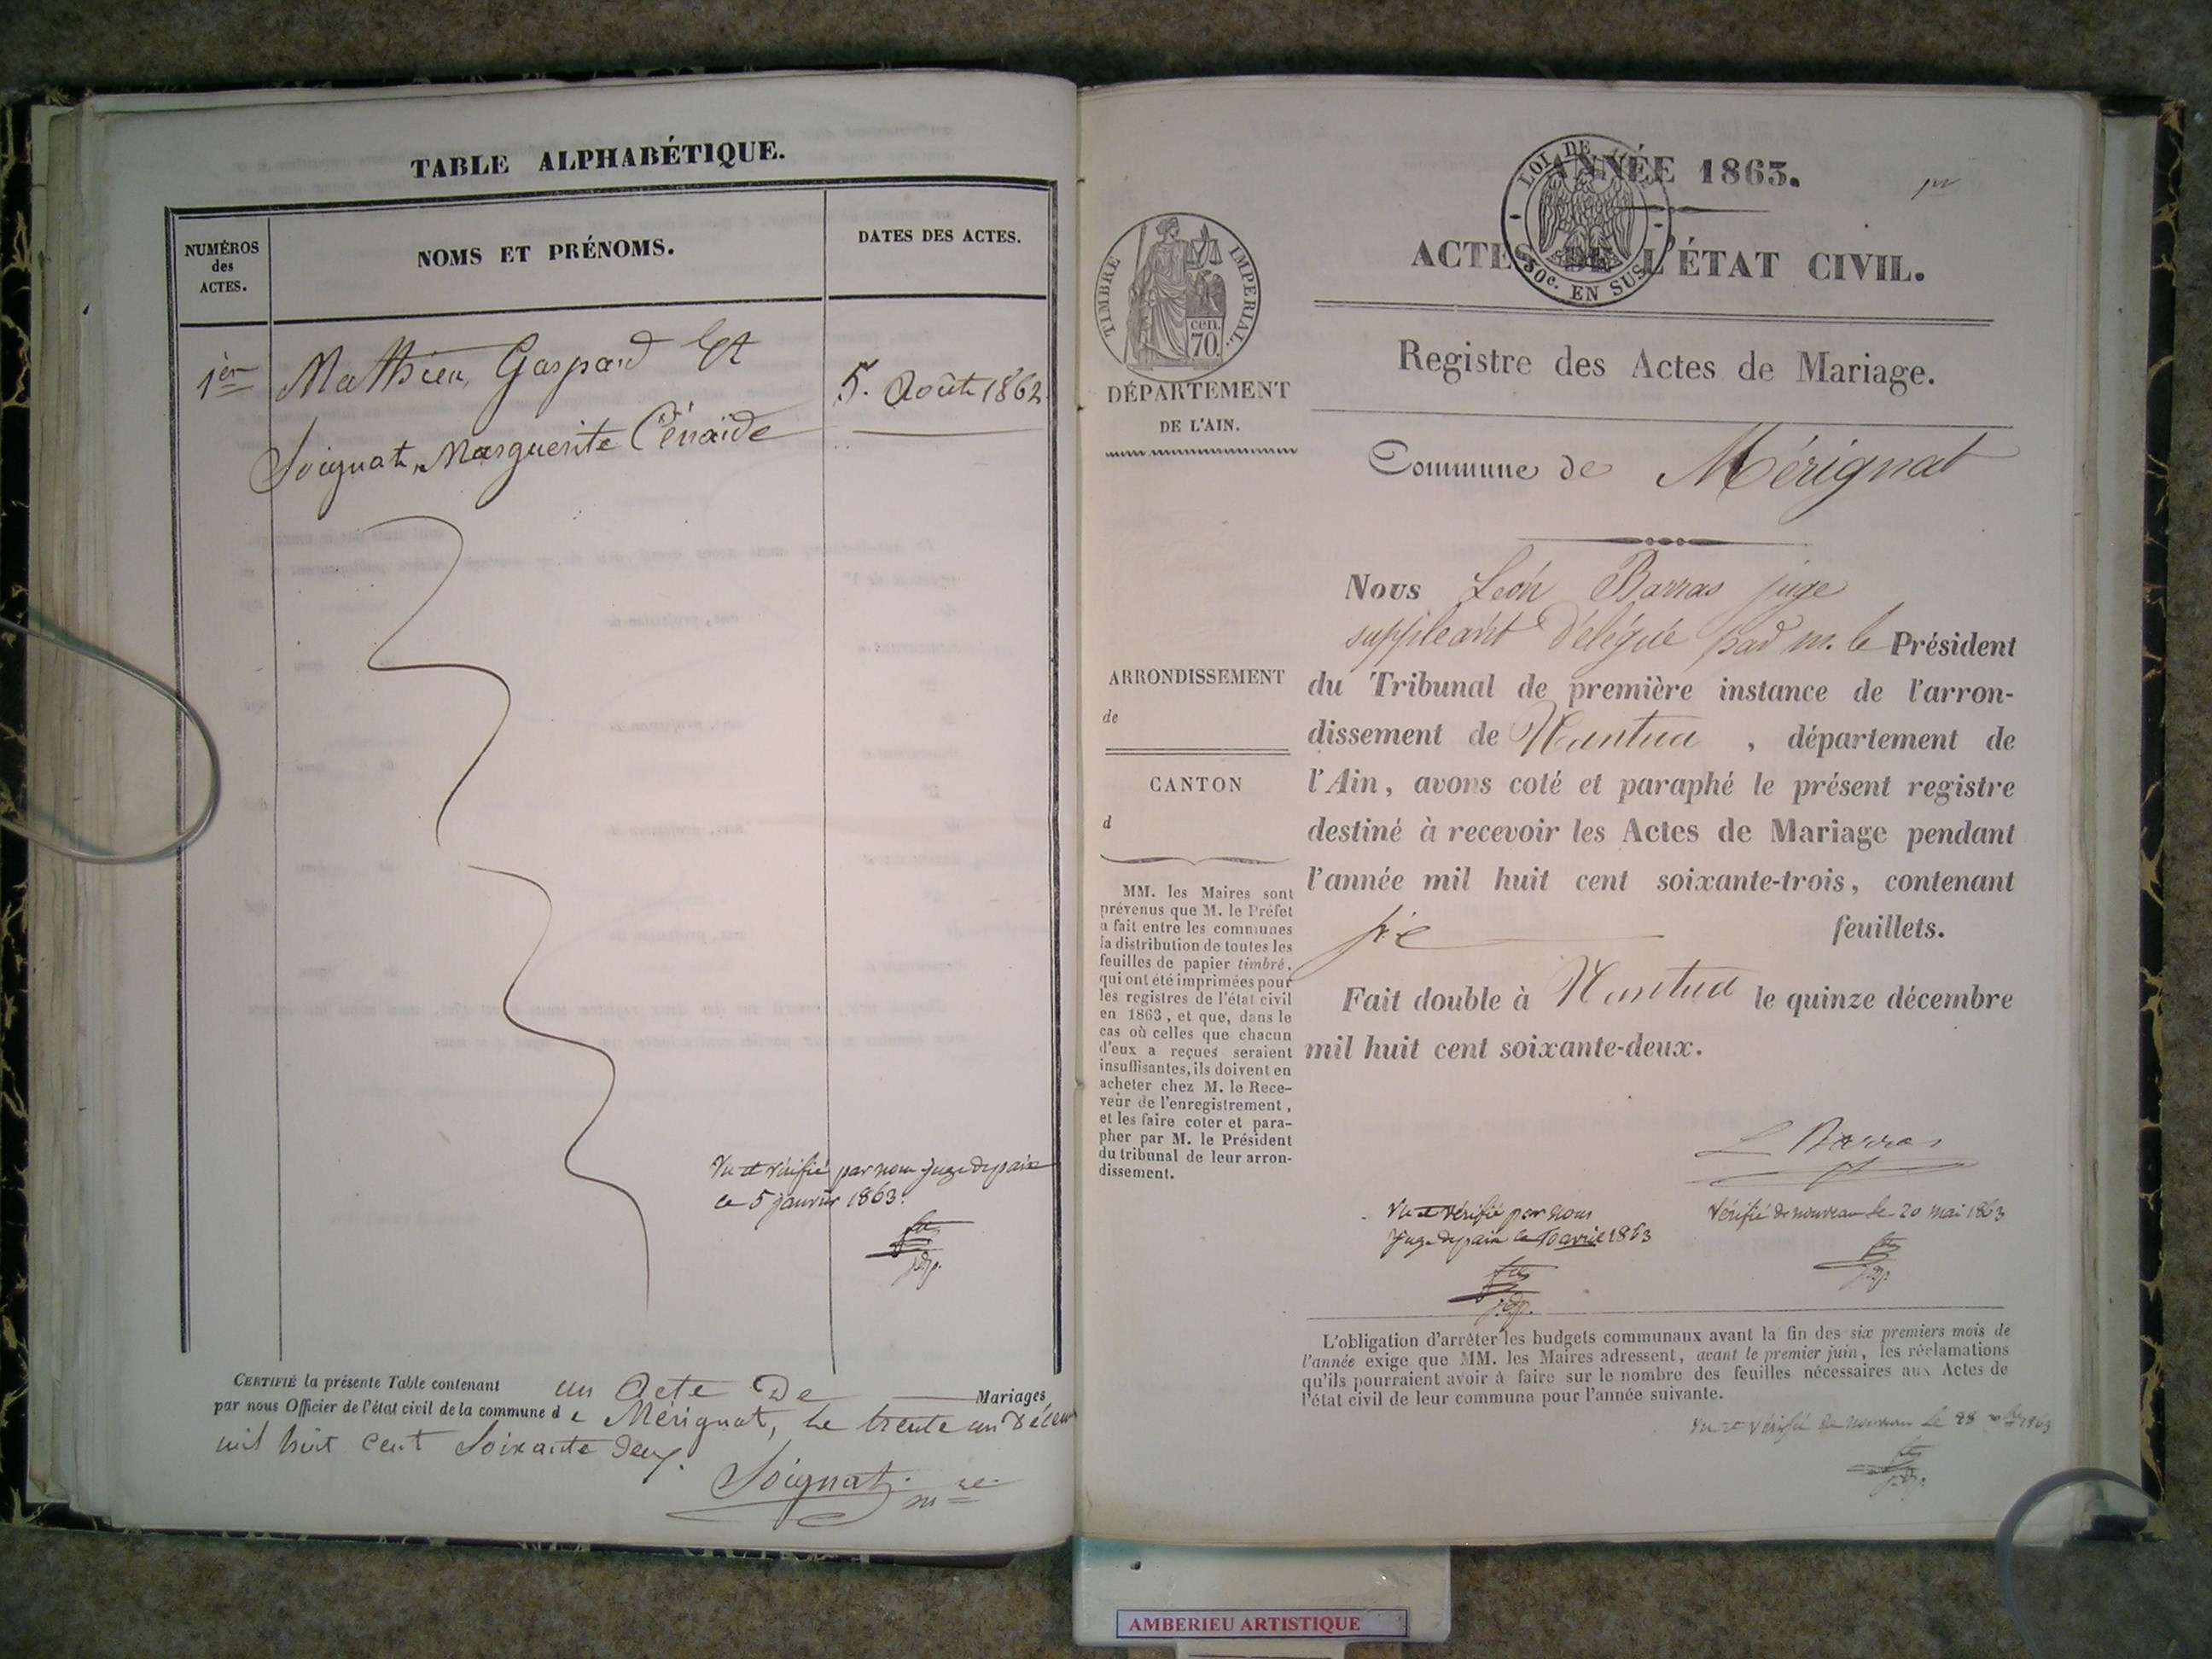 TABLE ALPHABÉTIQUE.
NUMÉROS
des
ACTES.
NOMS ET PRÉNOMS.
DATES DES ACTES.
1er Mathieu, Gaspard Et
5. Août 1862.
Soignat, Marguerite Cénaïde
Vu et vérifié par nous juge de paix
ce 5 janvier 1863.
j.d.p.
CERTIFIÉ la présente Table contenant un Acte De Mariages,
par nous Officier de l'état civil de la commune de Mérignat, le trente un Décem
mil huit cent Soixante deux.
Soignat mre
ANNÉE 1863.
LOI DE
50c. EN SUS
ACTES DE L'ÉTAT CIVIL.
TIMBRE IMPERIAL.
cen.
70.
DÉPARTEMENT
DE L'AIN.
Registre des Actes de Mariage.
Commune de Mérignat
ARRONDISSEMENT
de
CANTON
d
MM. les Maires sont
prévenus que M. le Préfet
a fait entre les communes
la distribution de toutes les
feuilles de papier timbré,
qui ont été imprimées pour
les registres de l'état civil
en 1863, et que, dans le
cas où celles que chacun
d'eux a reçues seraient
insuffisantes, ils doivent en
acheter chez M. le Rece-
veur de l'enregistrement,
et les faire coter et para-
pher par M. le Président
du tribunal de leur arron-
dissement.
Nous Léon Barras juge
suppléant délégué par m. le Président
du Tribunal de première instance de l'arron-
dissement de Nantua, département de
l'Ain, avons coté et paraphé le présent registre
destiné à recevoir les Actes de Mariage pendant
l'année mil huit cent soixante-trois, contenant
feuillets.
Fait double à Nantua le quinze décembre
mil huit cent soixante-deux.
L Barras
Vu et vérifié par nous
Juge de paix ce 10 avril 1863
j.d.p.
Vérifié de nouveau le 20 mai 1863
j.d.p.
L'obligation d'arrêter les budgets communaux avant la fin des six premiers mois de
l'année exige que MM. les Maires adressent, avant le premier juin, les réclamations
qu'ils pourraient avoir à faire sur le nombre des feuilles nécessaires aux Actes de
l'état civil de leur commune pour l'année suivante.
Vu et vérifié de nouveau le 1863
j.d.p.
AMBERIEU ARTISTIQUE